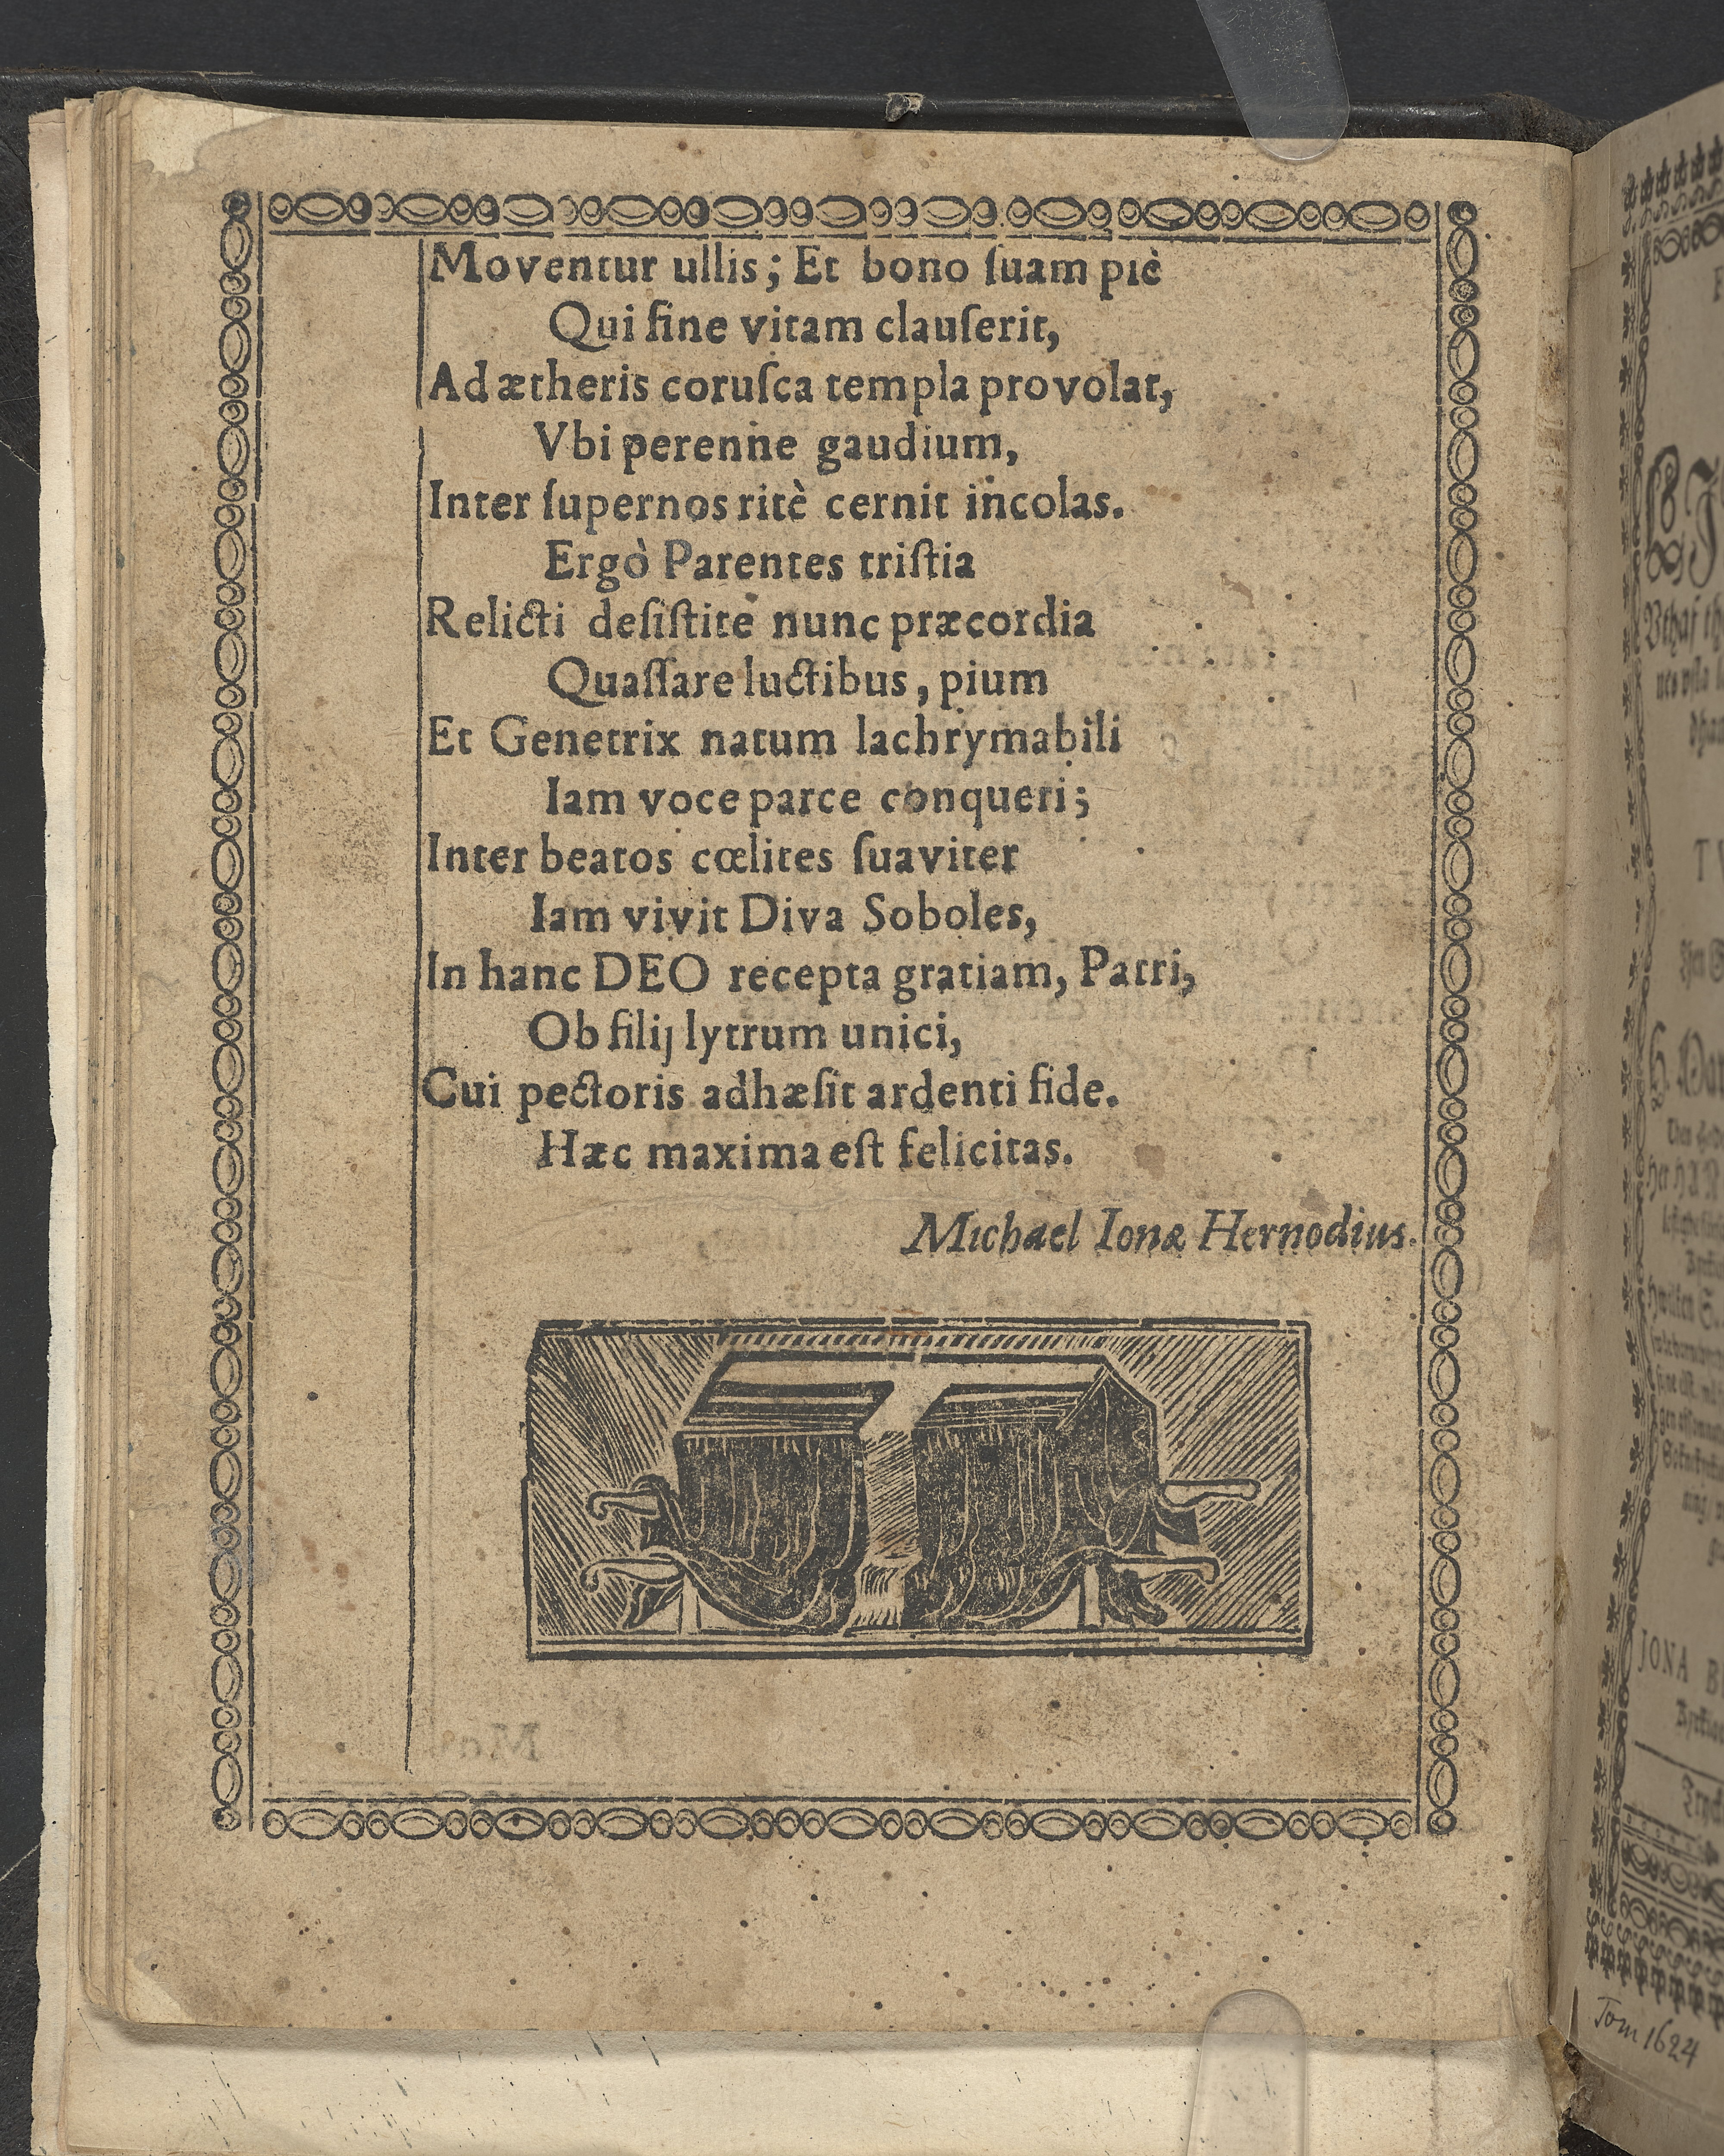 Moventur ullis; Et bono ſuam piè
Qui fine vitam clauſerit,
Ad ætheris coruſca templa provolat,
Vbi perenne gaudium,
Inter ſupernos ritè cernit incolas.
Ergò Parentes triſtia
Relicti deſiſtite nunc præcordia
Quaſſare luctibus, pium
Et Genetrix natum lachrymabili
Iam voce parce conqueri;
Inter beatos cœlites ſuaviter
Iam vivit Diva Soboles,
In hanc DEO recepta gratiam, Patri,
Ob filij lytrum unici,
Cui pectoris adhæſit ardenti fide.
Hæc maxima eſt felicitas.
Michael Ionæ Hernodius.
JONA
Tom 1624